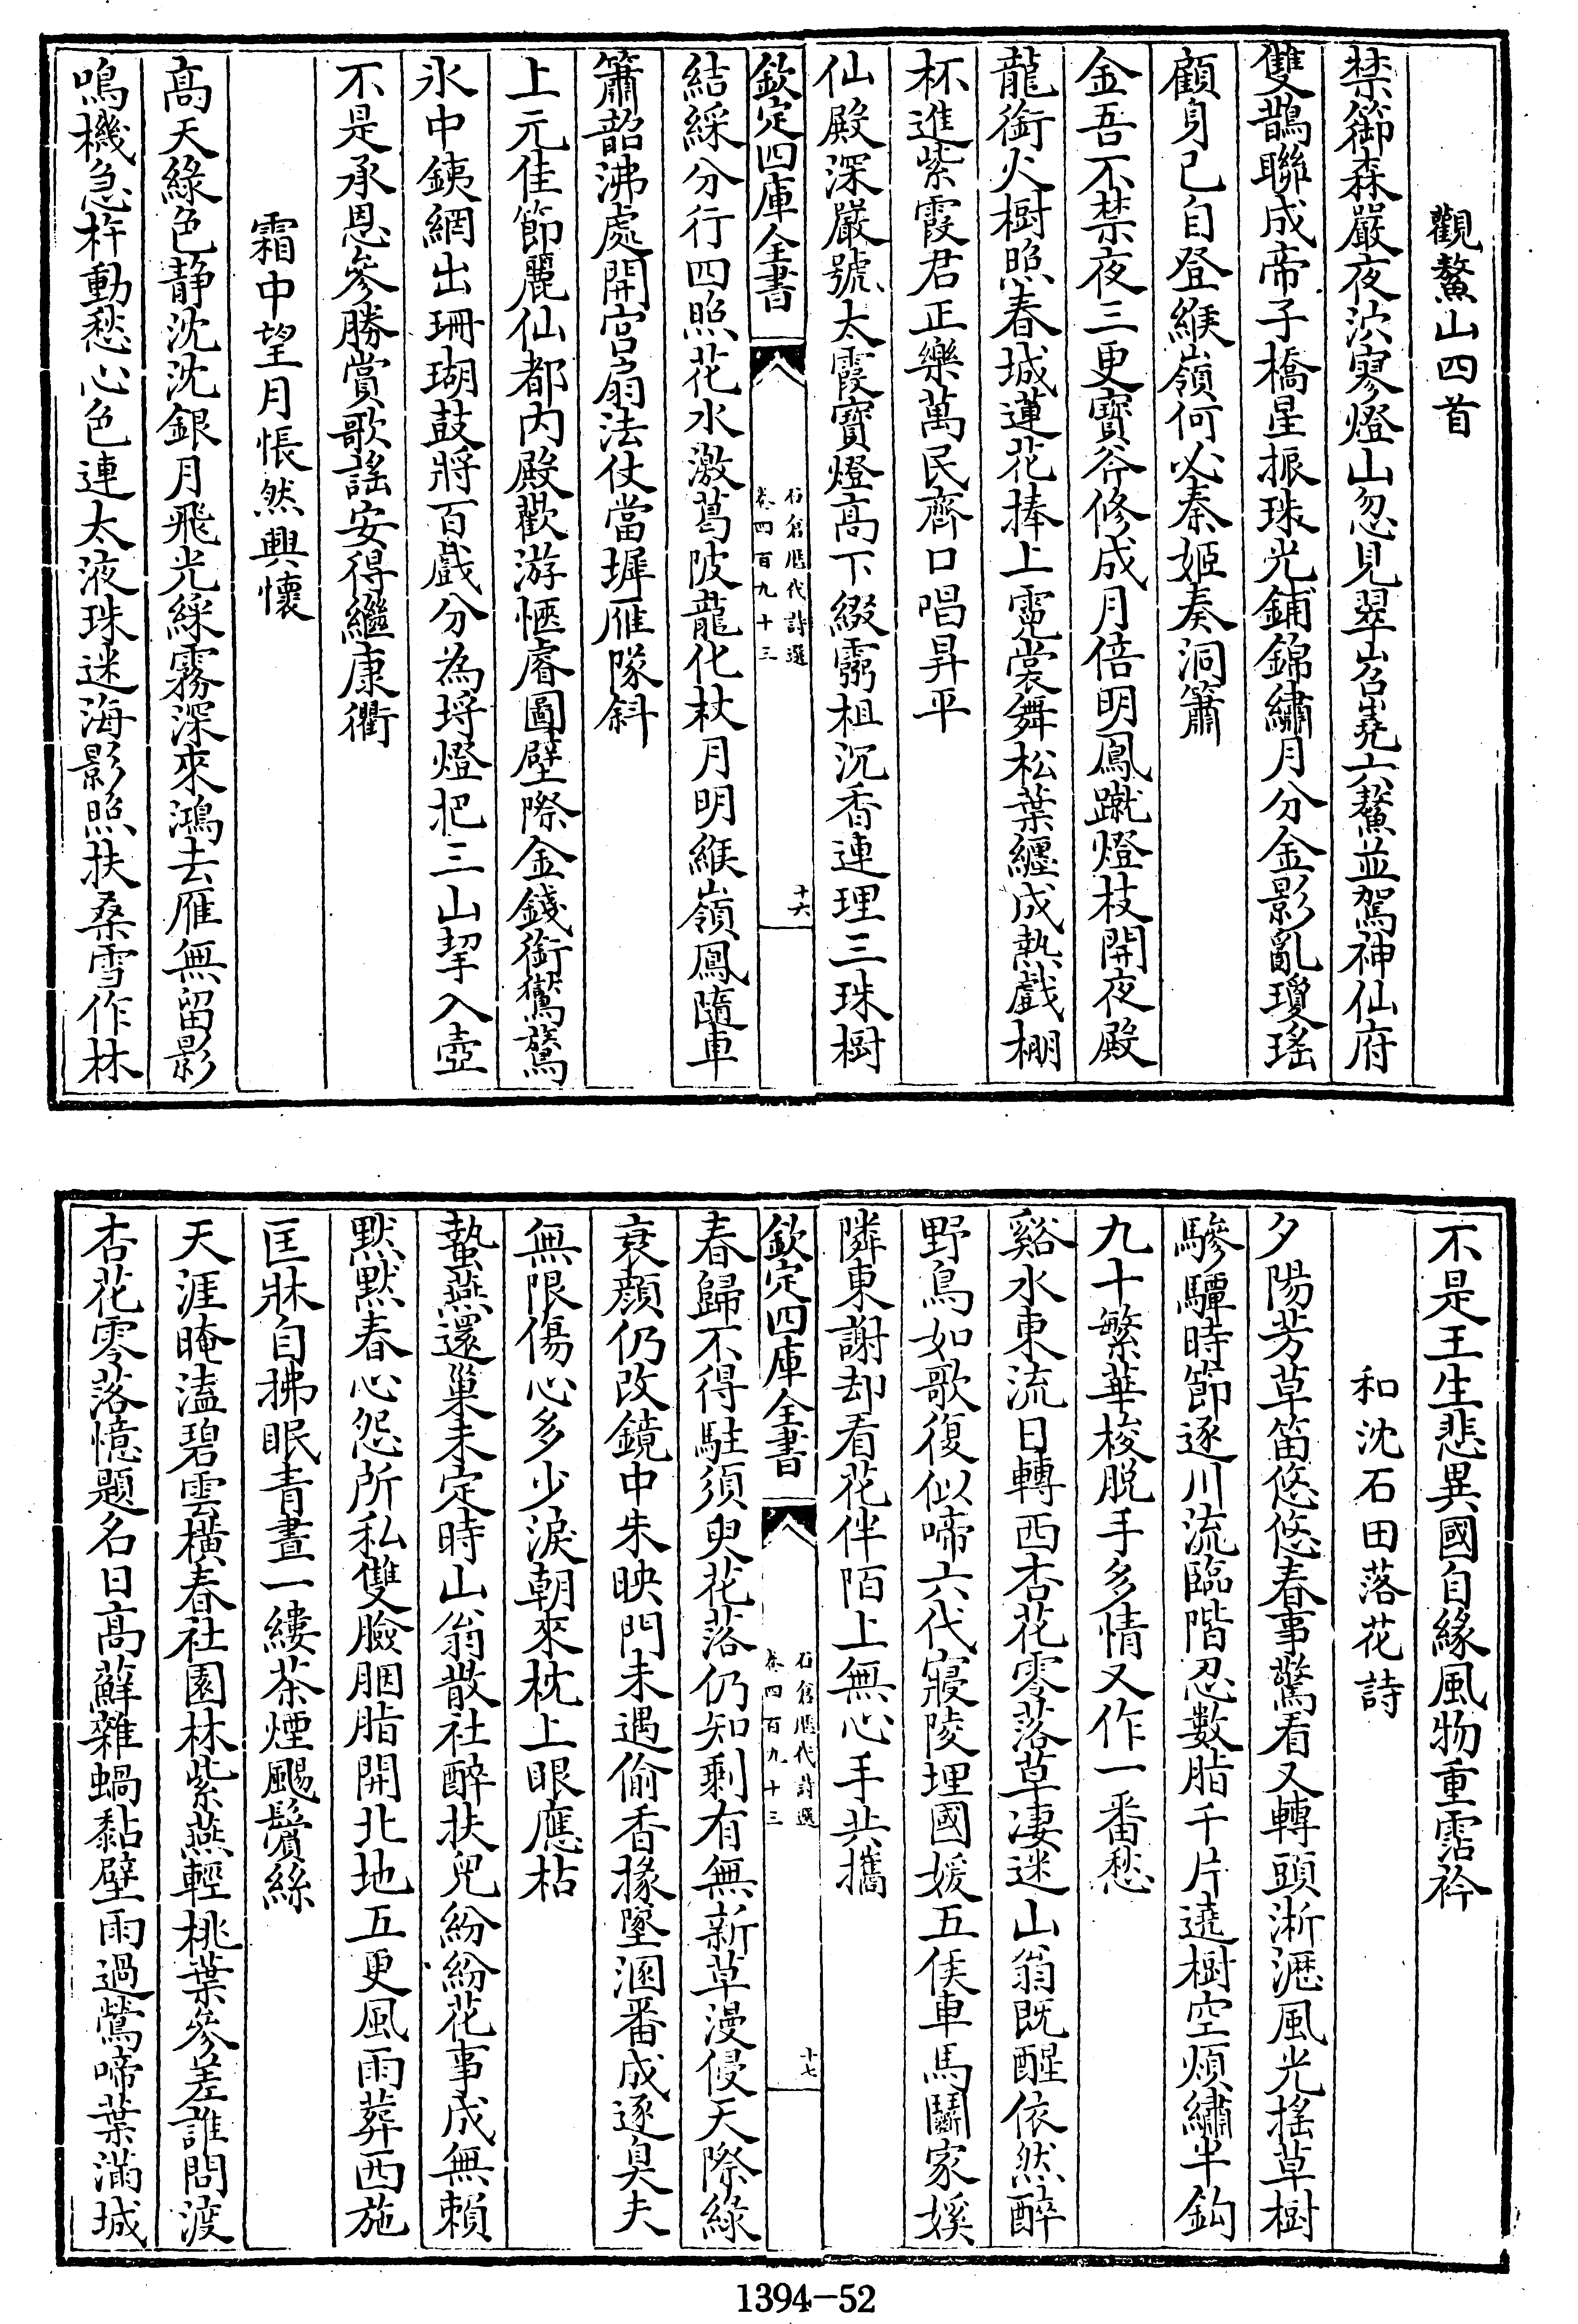 觀鰲山四首
禁籞森嚴夜泬寥燈山忽見翠岧嶤六鰲並駕神仙府
雙鵲聯成帝子橋星振珠光鋪錦繡月分金影亂瓊瑤
顧身已自登緱嶺何必秦姬奏洞簫
金吾不禁夜三更寶斧修成月倍明鳳蹴燈枝開夜殿
龍銜火樹照春城蓮花捧上霓裳舞松葉纏成熱戲棚
杯進紫霞君正樂萬民齊口唱昇平
仙殿深嚴號太霞寶燈高下綴雩祖沉香連理三珠樹
結綵分行四照花水激葛陂龍化杖月明緱嶺鳳隨車
簫韶沸處開宮扇法仗當墀雁隊斜
上元佳節麗仙都內殿歡游愜睿圖壁際金錢銜鸑鷟
水中鐵網出珊瑚鼓將百戲分為埒燈把三山挈入壺
不是承恩參勝賞歌謠安得繼康衢
霜中望月悵然興懷
高天綠色靜沈沈銀月飛光綵霧深來鴻去雁無留影
鳴機急杵動愁心色連太液珠迷海影照扶桑雪作林
欽定四庫全書
石倉歷代詩選
卷四百九十三
十六
不是王生悲異國自緣風物重霑衿
和沈石田落花詩
夕陽芳草笛悠悠春事驚看又轉頭淅瀝風光搖草樹
驂驔時節逐川流臨階忍數脂千片遶樹空煩繡半鉤
九十繁華梭脫手多情又作一番愁
谿水東流日轉西杏花零落草凄迷山翁既醒依然醉
野鳥如歌復似啼六代寢陵埋國媛五侯車馬鬬家嫨
隣東謝却看花伴陌上無心手共攜
春歸不得駐須臾花落仍知剩有無新草漫侵天際綠
衰顏仍改鏡中朱映門未遇偷香掾墜溷番成逐臭夫
無限傷心多少淚朝來枕上眼應枯
蟄燕還巢未定時山翁散社醉扶兒紛紛花事成無賴
默默春心怨所私雙臉胭脂開北地五更風雨葬西施
匡牀自拂眠青晝一縷茶煙颺鬢絲
天涯晻溘碧雲橫春社園林紫燕輕桃葉參差誰問渡
杏花零落憶題名日高蘚雜蝸黏壁雨過鶯啼葉滿城
欽定四庫全書
石倉歷代詩選
卷四百九十三
十七
1394-52